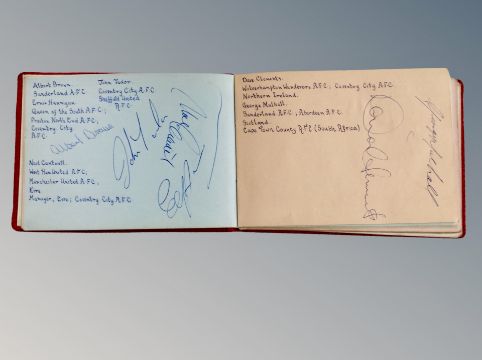 Albert Brown
Sunderland A.F.C.
Ernie Hannigan
Queen of the South A.F.C.;
Preston North End A.F.C.;
Coventry City
A.F.C.
John Tudor
Coventry City A.F.C.
Sheffield United
A.F.C.
Albert Brown
Noel Cantwell.
West Ham United A.F.C.;
Manchester United A.F.C.;
Eire
Manager, Eire; Coventry City A.F.C.
Dave Clements.
Wolverhampton Wanderers A.F.C.; Coventry City A.F.C.
Northern Ireland.
George Mulhall.
Sunderland A.F.C.; Aberdeen A.F.C.
Scotland
Cape Town County A.F.C (South Africa)
David Clements
George Mulhall